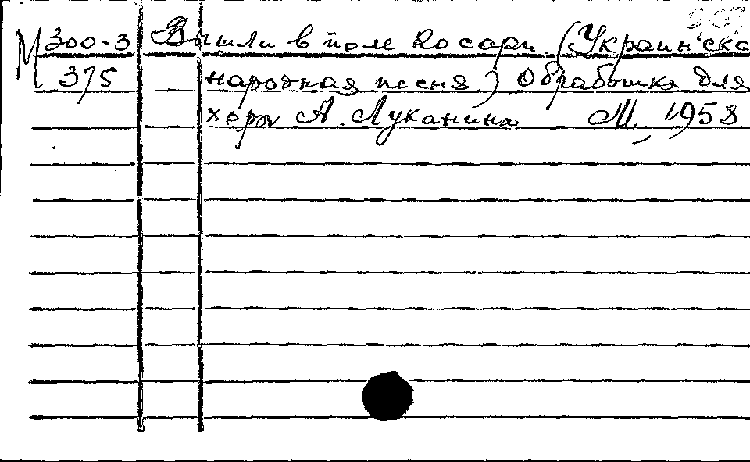 М 300-3 Вышли в поле косари (Украинска
375 народная песня) Обработка для
хора А. Луканина М., 1958